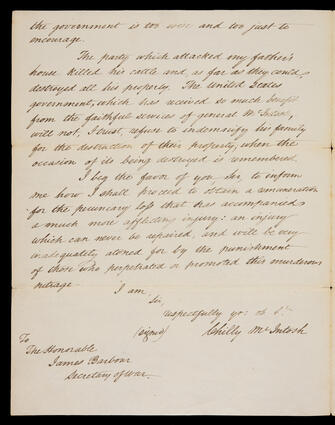 the government is too wise and too just to
encourage.
The party which attacked my father's
house killed his cattle and, as far as they could,
destroyed all his property. The United States
government, which has received so much benefit
from the faithful services of general McIntosh,
will not, I trust, refuse to indemnify his family
for the destruction of their property, when the
occasion of its being destroyed is remembered.
I beg the favor of you Sir, to inform
me how I shall proceed to obtain a remuneration
for the pecuniary loss that has accompanied
a much more afflicting injury: an injury
which can never be repaired, and will be very
inadequately atoned for by the punishment
of those who perpetrated or promoted this murderous
outrage.
I am,
Sir,
respectfully yr: ob St
(signed) Chilly McIntosh
To
The Honorable
James Barbour
Secretary of War.